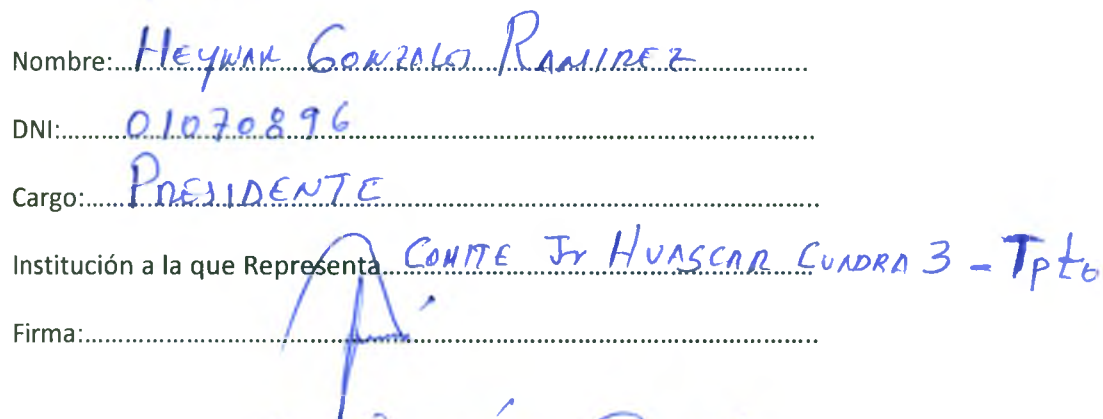 Nombre: HEYNAR GONZALO RAMIREZ
DNI: 01070896
Cargo: PRESIDENTE
Institución a la que Representa COMITE Jr HUASCAR CUADRA 3 - Tpto
Firma: